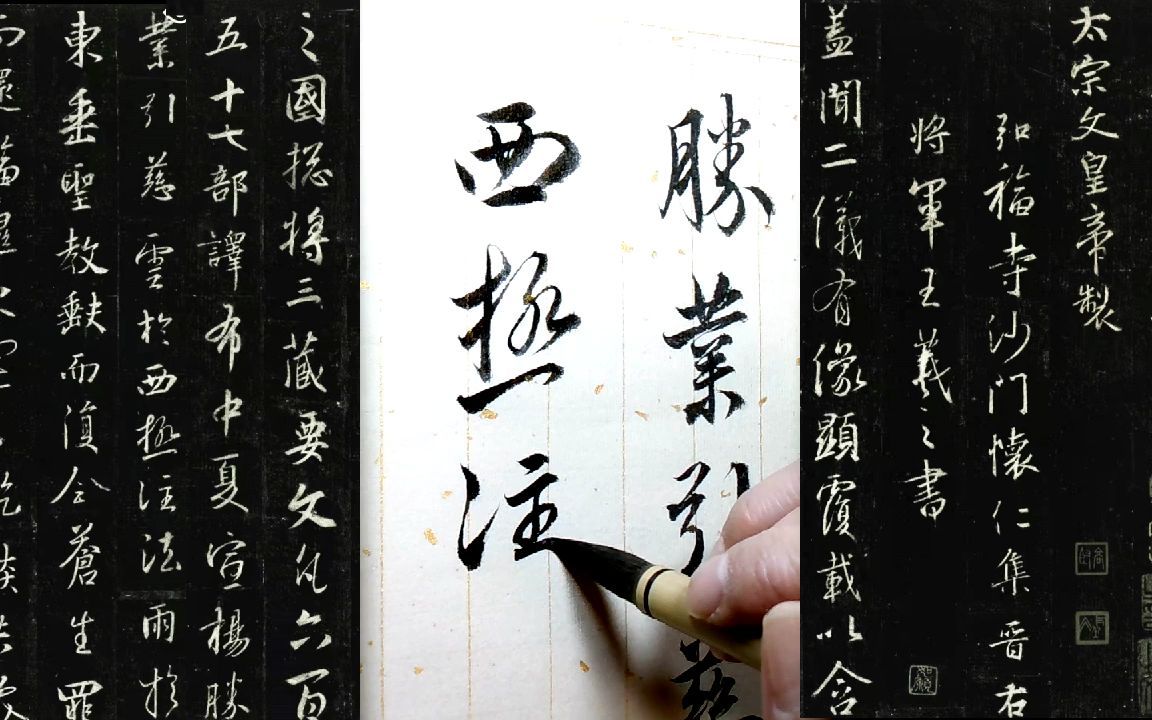 太宗文皇帝製
弘福寺沙門懷仁集晋右
將軍王羲之書
蓋聞二儀有像顯覆載以含
勝業引慈
西極注
之國捴將三藏要文凡六百
五十七部譯布中夏宣楊勝
業引慈雲於西極注法雨於
東垂聖教缺而復全蒼生罪